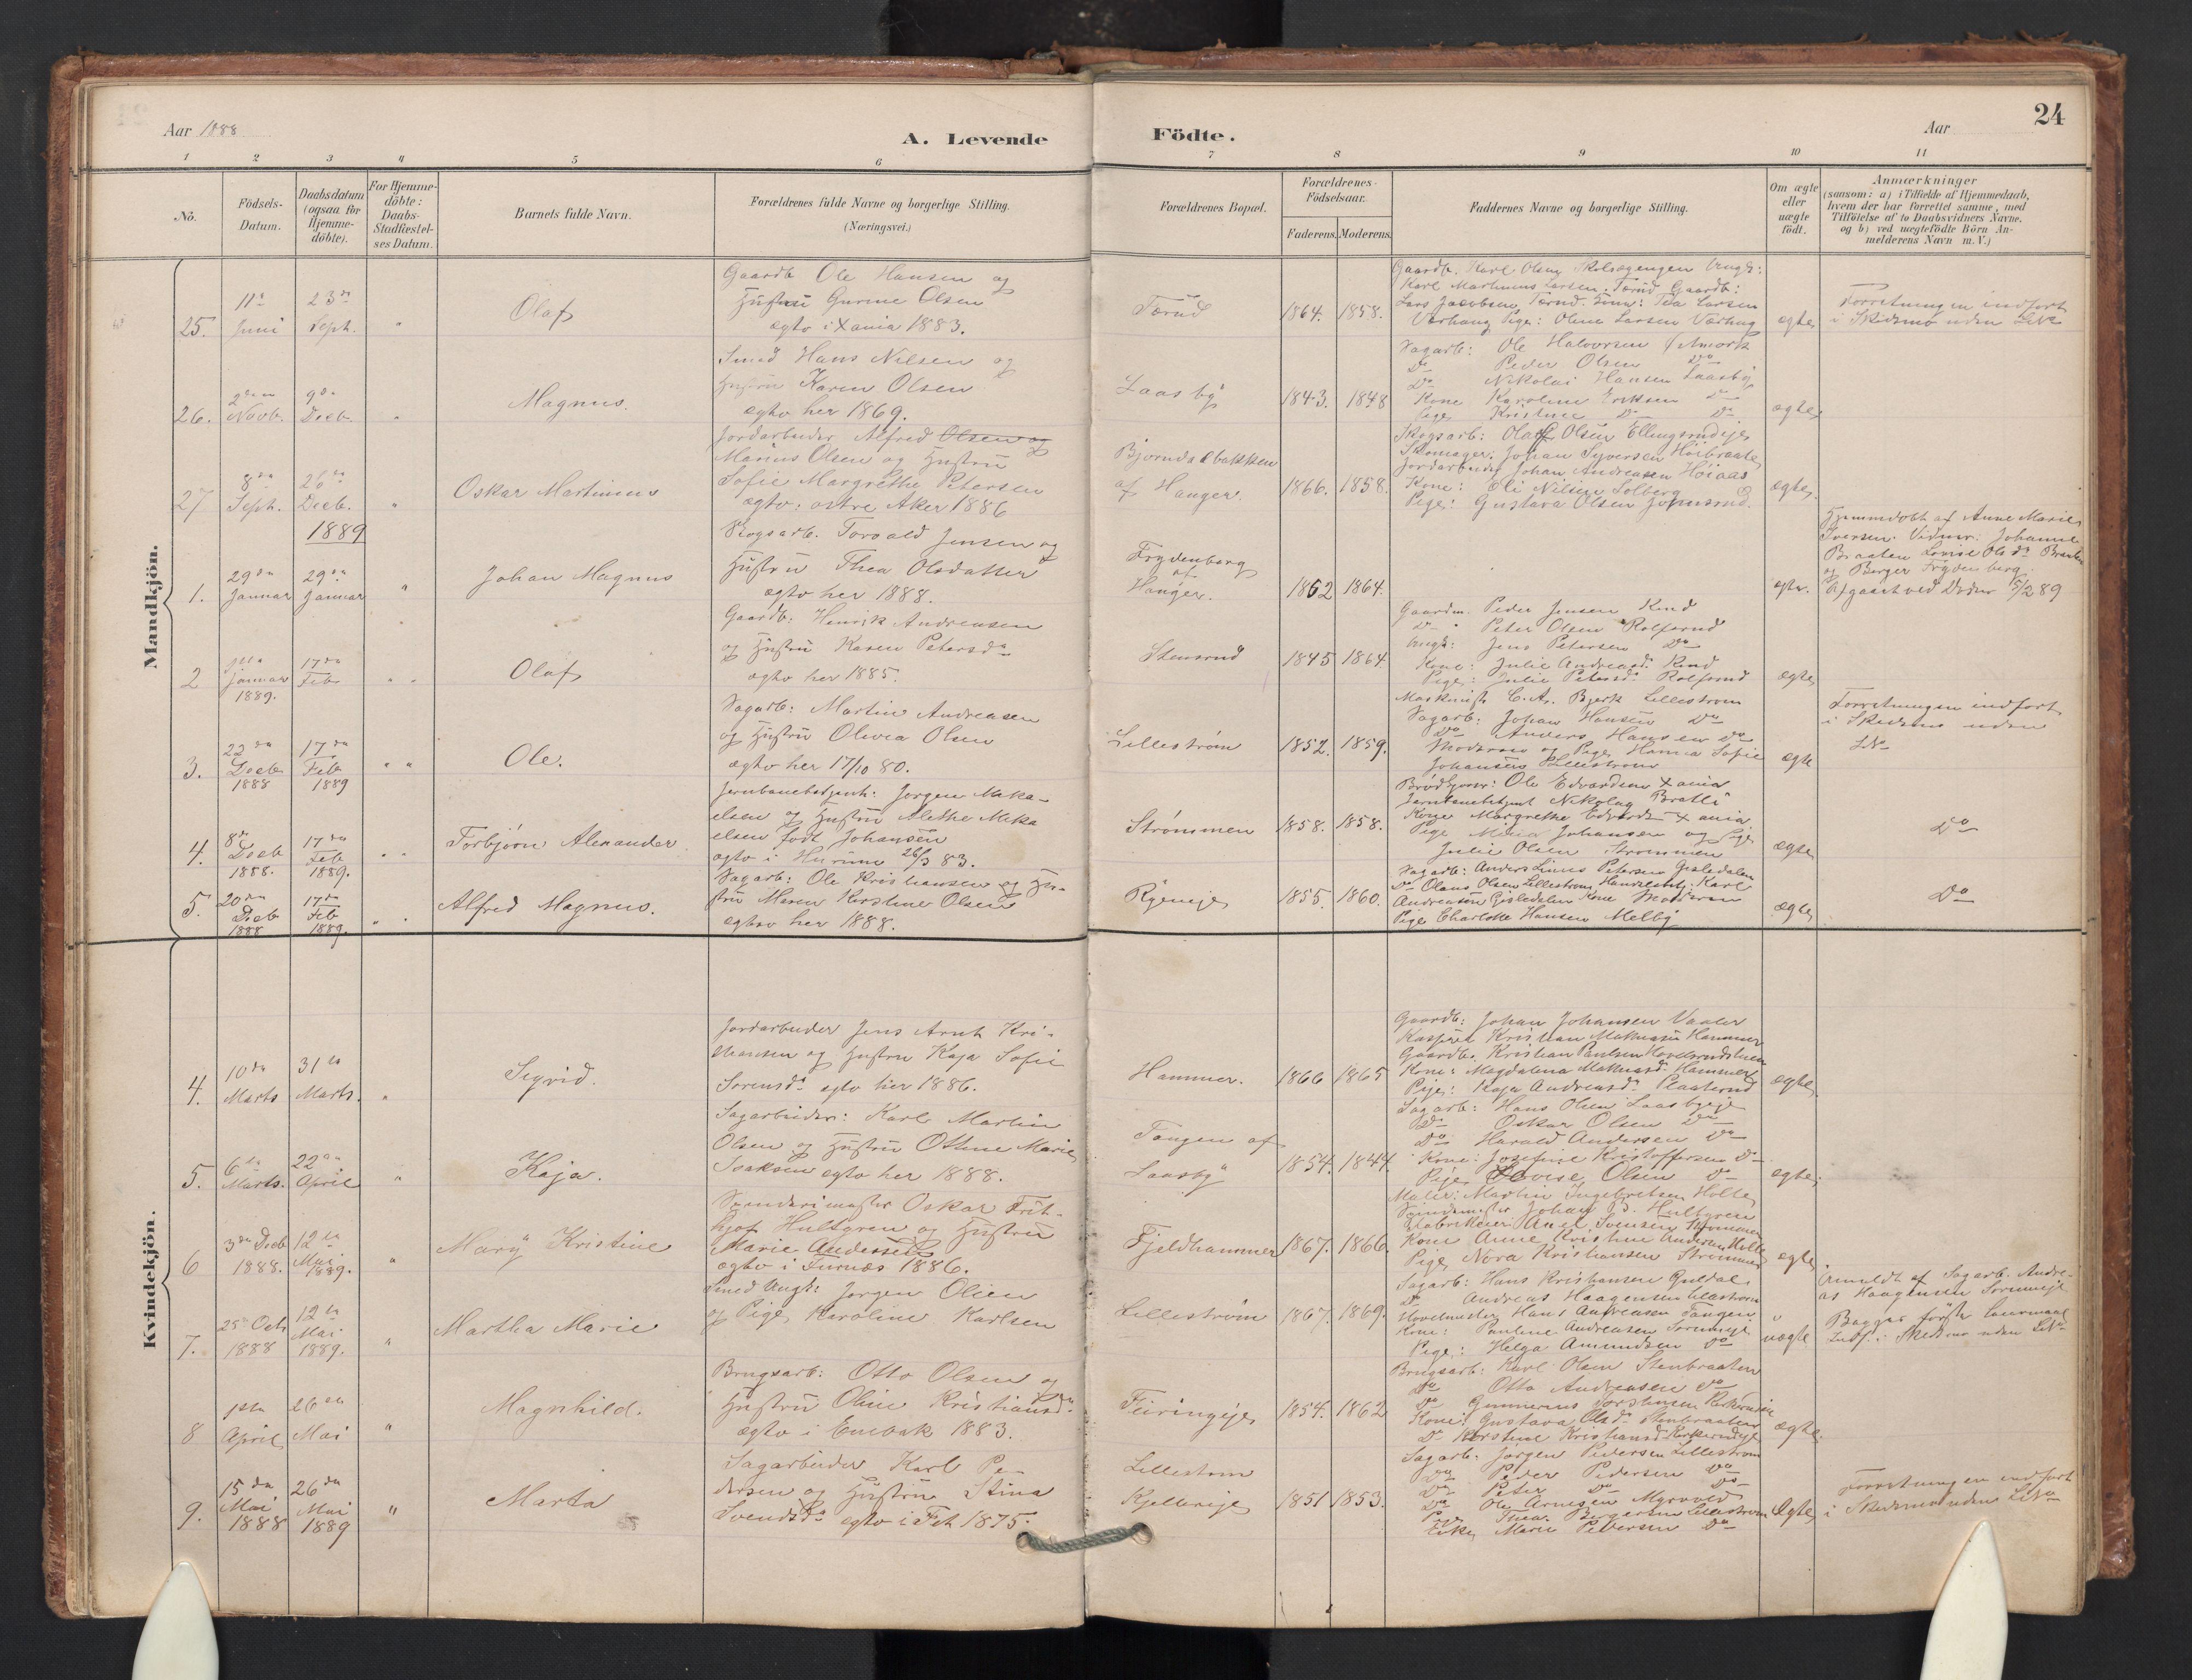 24
Aar 1888
A. Levende
Födte.
Aar
1 2 3 4 5 6 7 8 9 10 11
No.
Födsels-
Datum.
Daabsdatum
(ogsaa for
Hjemme-
döbte).
For Hjemme-
döbte:
Daabs-
Stadfæstel-
ses Datum.
Barnets fulde Navn.
Forældrenes fulde Navne og borgerlige Stilling.
(Næringsvei.)
Forældrenes Bopæl.
Forældrenes
Födselsaar.
Faderens. Moderens.
Faddernes Navne og borgerlige Stilling.
Om ægte
eller
uægte
födt.
Anmærkninger
(saasom: a) i Tilfælde af Hjemmedaab,
hvem der har forrettet samme, med
Tilföielse af to Daabsvidners Navne.
og b) ved uægtefödte Börn An-
melderens Navn m. V.)
Mandkjön.
25.
11te
Juni
23de
Septr.
Olaf
Gaardb Ole Hansen og
Hustru Gurine Olsen
egtv i Xania 1883.
Tærud
1864. 1858.
Gaardb. Karl Olsen
Karl Martinius Larsen Tærud Gaardb:
Lars Jacobsen Tærud Kone: Tea Larsen
Værhaug Pige: Oline Larsen Værhug
ægte
Forretningen indført
i Skidsmo uden LNo
26.
2den
Novb.
9de
Decb.
Magnus.
Smed Hans Nilsen og
Hustru Karen Olsen
egtv her 1869.
Laasby
1843. 1848
Sagarb: Ole Halvorsen
Do Peder Olsen Do
Do Nikolai Hansen Laasby
Kone Karoline Eriksen Do
Pige Kristine Do Do
ægte
27
8de
Septr.
26de
Decb.
Oskar Martinius
Jordarbeider Alfred Olsen og
Marius Olsen og Hustru
Sofie Margrethe Petersen
egtv: østre Aker 1886
Bjørndalsbakken
af Hauger.
1866. 1858.
Skogsarb: Olaf Olsen Ellingsrudeje
Skomager. Johan Syversen Høibraate
Jordarbeider Johan Andreasen Høiaas
Kone: Oli Nilsen Solberg
Pige: Gustava Olsen
ægte
1889
1.
29de
Januar
29de
Januar
Johan Magnus
Skogsarb. Torvald Jensen og
Hustru Thea Olsdatter
egtv her 1888.
Frydenberg
af
Hauger.
1862 1864.
ægte.
Hjemmedøbt af Anne Marie
Iversen. Vidner: Johanne
Braaten Lovise Olsdr Braaten
og Berger Frydenberg.
Afgaaet ved Døden 5/2 89
2
1ste
Januar
1889.
17de
Feb
Olaf
Gaardb: Henrik Andreasen
og Hustru Karen Petersdr
egtv her 1885.
Stensrud
1845 1864
Gaardm. Peder Jensen Rud
Do Peter Olsen Rolfsrud
Ungk: Jens Petersen Do
Kone: Julie Andreasdr Rud
Pige: Julie Petersdr Rolfsrud
ægte
3.
22de
Decb
1888
17de
Feb
1889
Ole.
Sagarb: Martin Andreasen
og Hustru Olivia Olsen
egtv her 17/10 80.
Lillestrøm
1852. 1859.
Maskinist C. A. Bjerk Lillestrøm
Sagarb: Johan Hansen Do
Do Anders Hansen Do
Moderen og Pige Hanna Sofie
Johansen Lillestrøm
ægte
Forretningen indført
i Skedsmo uden
LNo
4.
8de
Decb
1888.
17de
Feb
1889.
Torbjørn Alexander
Jernbanebetjent: Jørgen Meka-
elsen og Hustru Alethe Meka
elsen født Johansen
egtv i Hurum 26/3 83.
Strømmen
1858. 1858.
Ole Edvardsen Xania
Jernbanebetjent Nikolay Bratli
Kone Margrethe Edvards Xania
Pige Mina Johansen og Pige
Julie Olsen Strømmen
ægte
Do
5.
20de
Decb
1888
17de
Feb
1889.
Alfred Magnus.
Sagarb: Ole Kristiansen og Hu-
stru Maren Kirstine Olsen
egtv her 1888.
1855. 1860.
Sagarb: Anders Linus Petersen Gisledalen
Do Olaus Olsen Lillestrøm Handelsbetj: Karl
Andreasen Gisledalen Kone Moderen
Pige Charlotte Hansen Melby
ægte
Do
Kvindekjön.
4.
10de
Marts
31te
Marts.
Sigrid.
Jordarbeider Jens Arnt Kri-
stiansen og Hustru Kaja Sofie
Sørensdr egtv her 1886.
Hammer.
1866 1865
Gaardb: Johan Johansen Vaaler
Kristian Hammer
Gaardb. Kristian Paulsen
Kone: Magdalena Hammer
Pige: Kaja Andreasdr
ægte
5.
6te
Marts.
22de
April
Kaja.
Sagarbeider: Karl Martin
Olsen og Hustru Othine Marie
Isaksen egtv her 1888.
Tangen af
Laasby
1854. 1844.
Sagarb: Hans Olsen Laasbyeje
Do Oskar Olsen Do
Do Harald Andersen Do
Kone: Josefine Kristoffersen Do
Pige Lovise Olsen Do
ægte
6
3die Decb
1888.
12te
Mai
1889.
Mary Kristine
Spinderimester Oskar Frit-
hjof Hultgren og Hustru
Marie Andersen
egtv i Furnæs 1886.
Fjeldhammer
1867. 1866.
Maler: Martin Ingebretsen Holte
Spindemester Johan B. Hultgren
Fabrikeier Axel Svensen Strømmen
Kone Anne Kristine Andersen Holte
Pige Nora Kristiansen Strømmen
ægte
7.
25de Octr
1888
12te
Mai
1889.
Martha Marie
Smed Ungk: Jørgen Olsen
og Pige Karoline Karlsen
Lillestrøm
1867. 1869.
Sagarb: Hans Kristiansen
Do Andreas Haagensen Lillestrøm
Høvelmester Hans Andreasen Tangen
Kone: Pauline Andreasen
Pige: Helga Amundsen Do
uægte
Anmeldt af Sagarb. Andre-
as Haagensen
Begges første Leiermaal
Indf. i Skedsmo uden LNo
8
1ste
April
26de
Mai
Magnhild.
Brugsarb: Otto Olsen og
Hustru Oline Kristiansdr
egtv i Enebak 1883.
Feiringeje
1854. 1862
Brugsarb: Karl Olsen Stenbraaten
Do Otto Andreasen Do
Do Gunnerius Torstensen
Kone: Gustava Olsdr Stenbraaten
Do Kirstine Kristiansd
ægte.
9.
15de
Mai
1888
26de
Mai
1889
Marta
Sagarbeider Karl Pe-
dersen og Hustru Stina
Svendsdr egtv i Fet 1875.
Lillestrøm
Kjellereje
1851 1853.
Sagarb. Jørgen Pedersen Lillestrøm
Do Peder Pedersen Do
Do Peter Do Do
Do Ole Arnesen Myrvold
Pige Thea Bergersen Lillestrøm
Enke Marie Pedersen Do
Ægte
Forretningen indført
i Skedsmo uden LNo